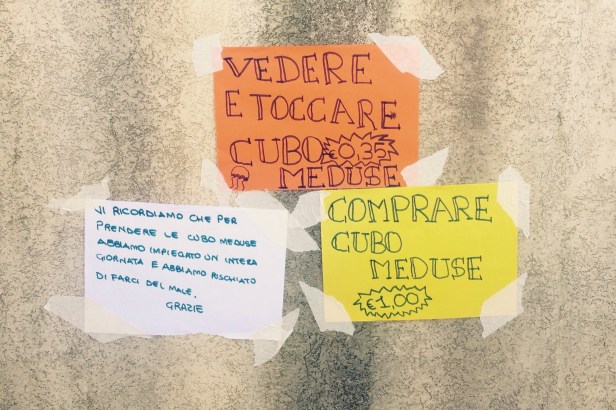 VEDERE
E TOCCARE
CUBO €0,35
MEDUSE
VI RICORDIAMO CHE PER
PRENDERE LE CUBO MEDUSE
ABBIAMO IMPIEGATO UN INTERA
GIORNATA E ABBIAMO RISCHIATO
DI FARCI DEL MALE.
GRAZIE
COMPRARE
CUBO
MEDUSE
€1,00